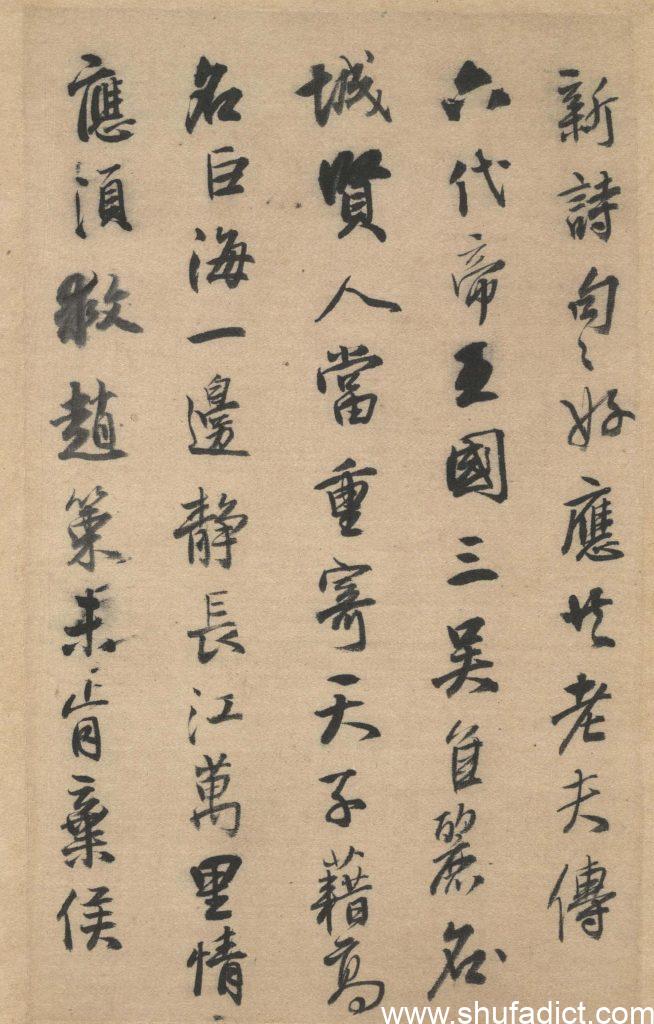 新詩句〻好應共老夫傳
六代帝王國三吳自麗名
城賢人當重寄天子藉高
名巨海一邊靜長江萬里情
應須救趙策未肯棄侯
www.shufadict.com